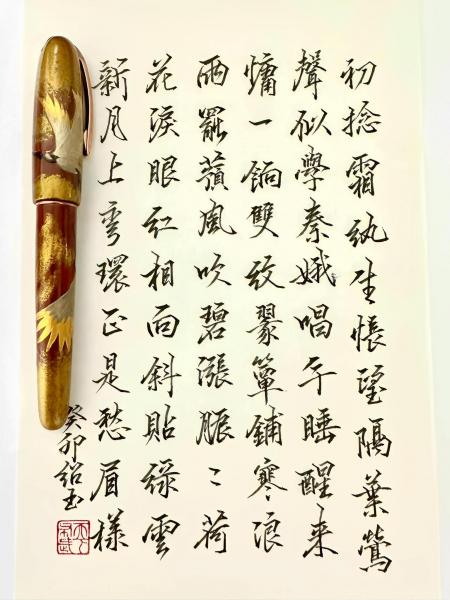 初捻霜紈生悵望隔葉鶯
聲似學秦娥唱午睡醒来
慵一餉雙紋翠簟鋪寒浪
雨罷蘋風吹碧漲脈〻荷
花淚眼紅相向斜貼綠雲
新月上彎環正是愁眉樣
癸卯紹玉